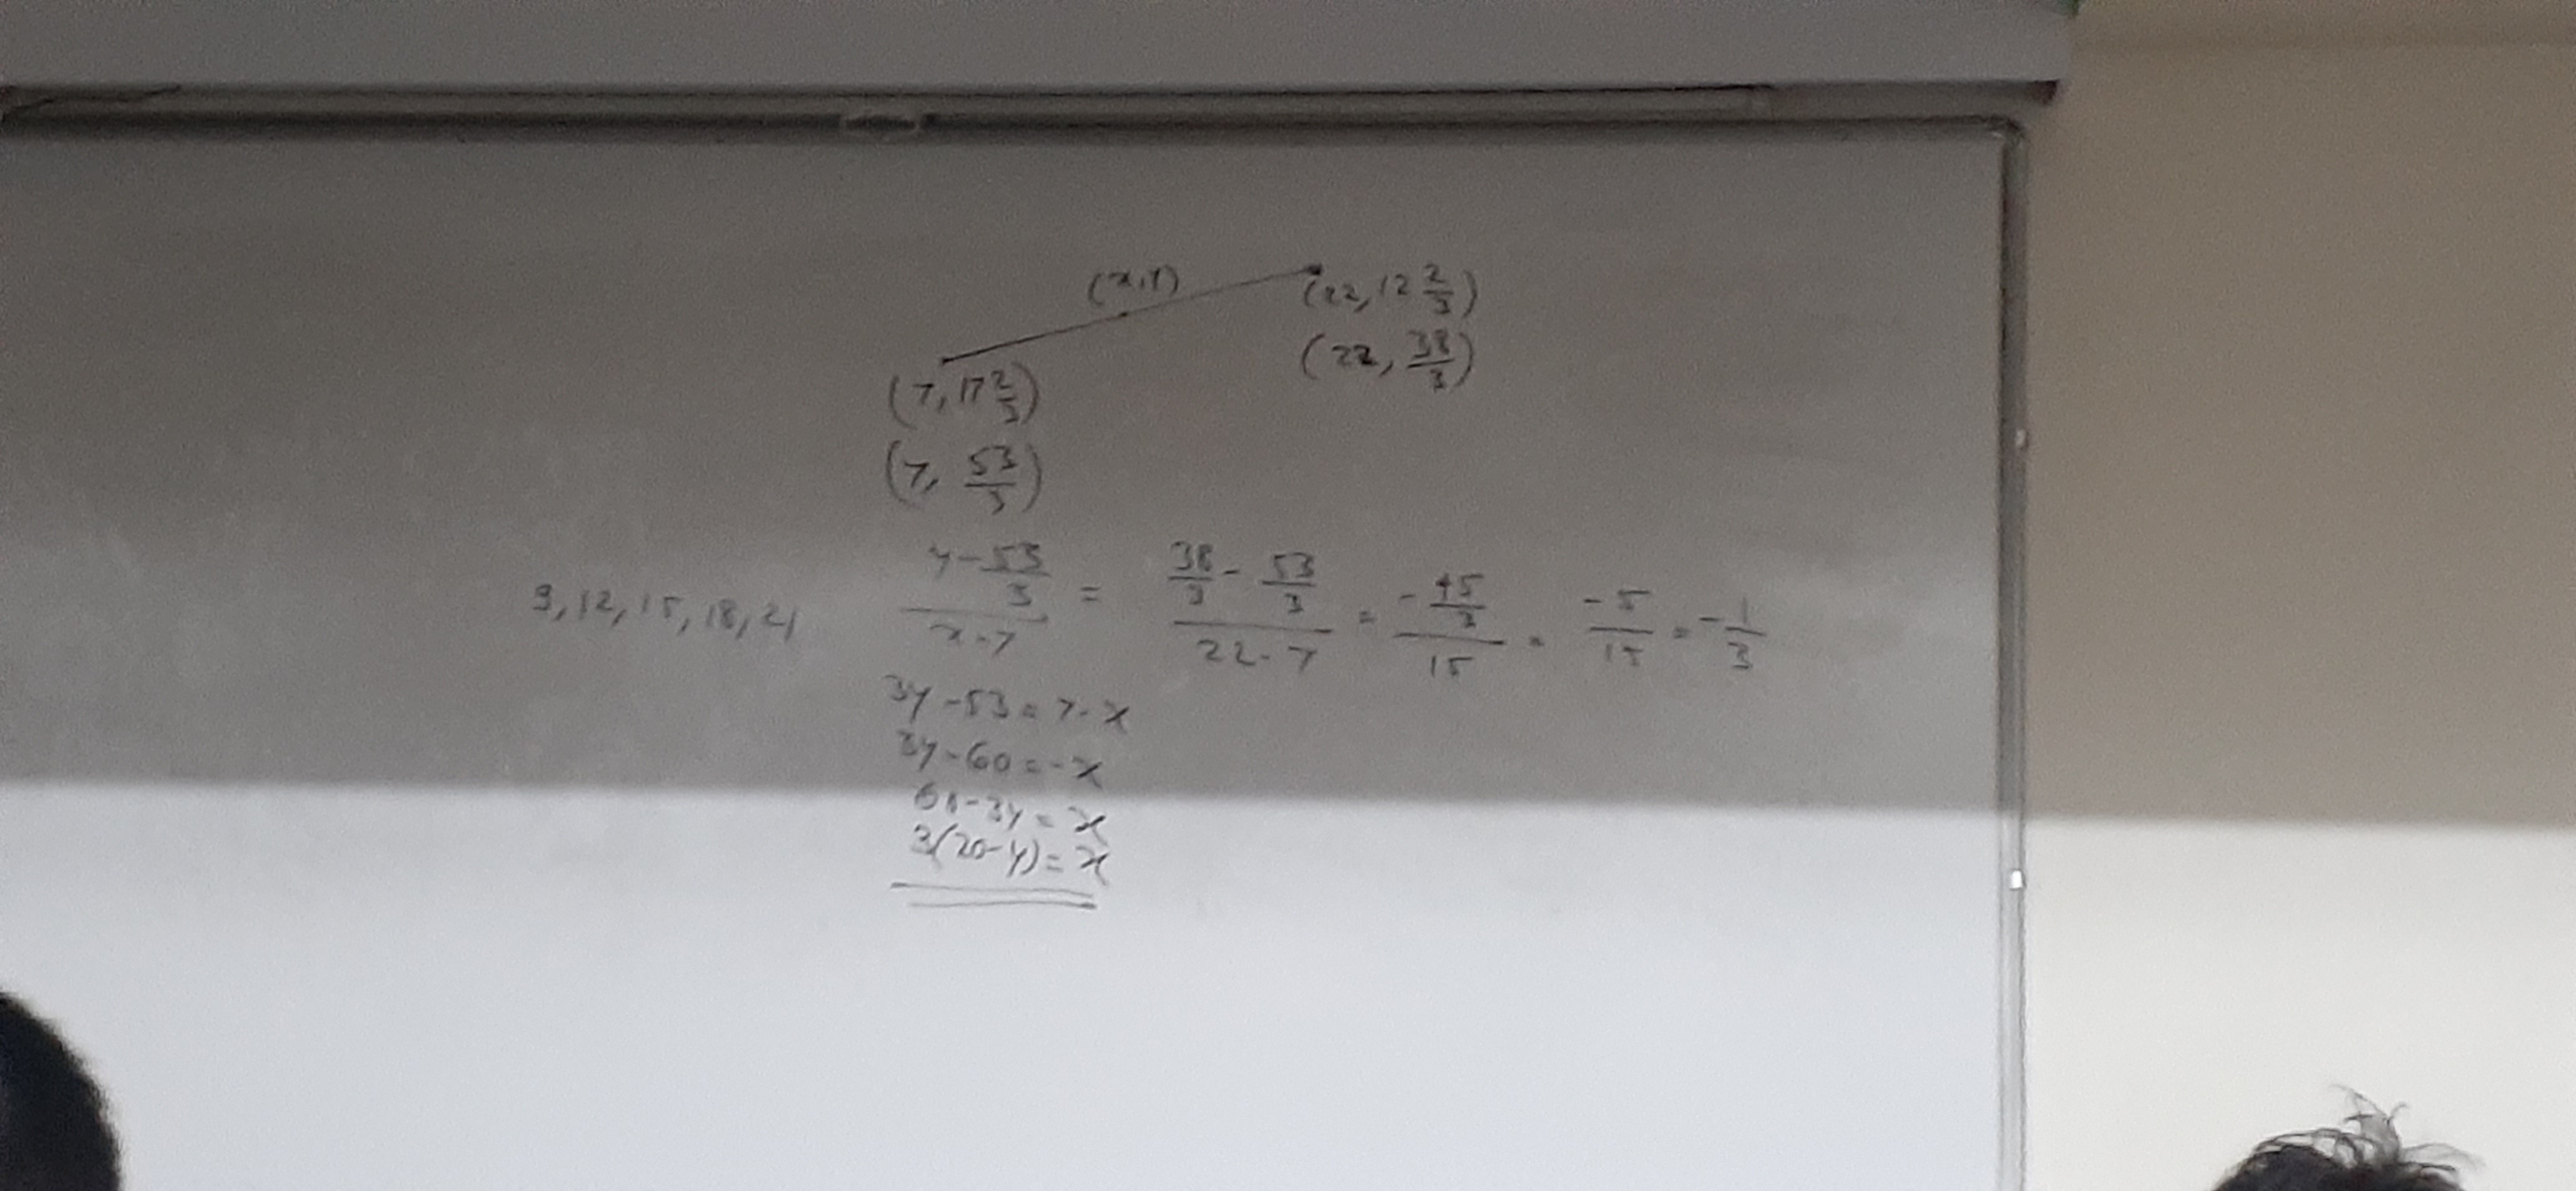 (x,y)
(22, 12 2/3)
(22, 38/3)
(7, 17 2/3)
(7, 53/3)
9, 12, 15, 18, 21
(y - 53/3)/(x - 7) = (38/3 - 53/3)/(22 - 7) = (-45/3)/15 = -5/15 = -1/3
3y - 53 = 7 - x
3y - 60 = -x
60 - 3y = x
3(20 - y) = x